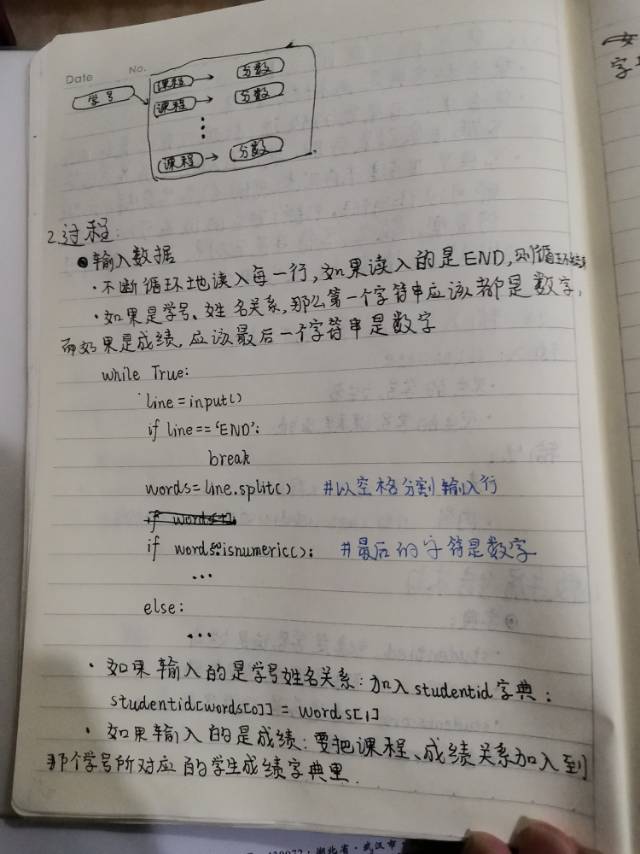 Date No.
学号
课程 → 分数
课程 → 分数
课程 → 分数
2.过程:
输入数据
·不断循环地读入每一行,如果读入的是END,则循环结束
·如果是学号、姓名关系,那么第一个字符串应该都是数字,
而如果是成绩,应该最后一个字符串是数字
while True:
line=input()
if line=='END':
break
words=line.split() #以空格分割输入行
if .isnumeric(): #最后的字符是数字
...
else:
...
·如果输入的是学号姓名关系:加入studentid字典:
studentid[words[0]] = words[1]
·如果输入的是成绩:要把课程、成绩关系加入到
那个学号所对应的学生成绩字典里.